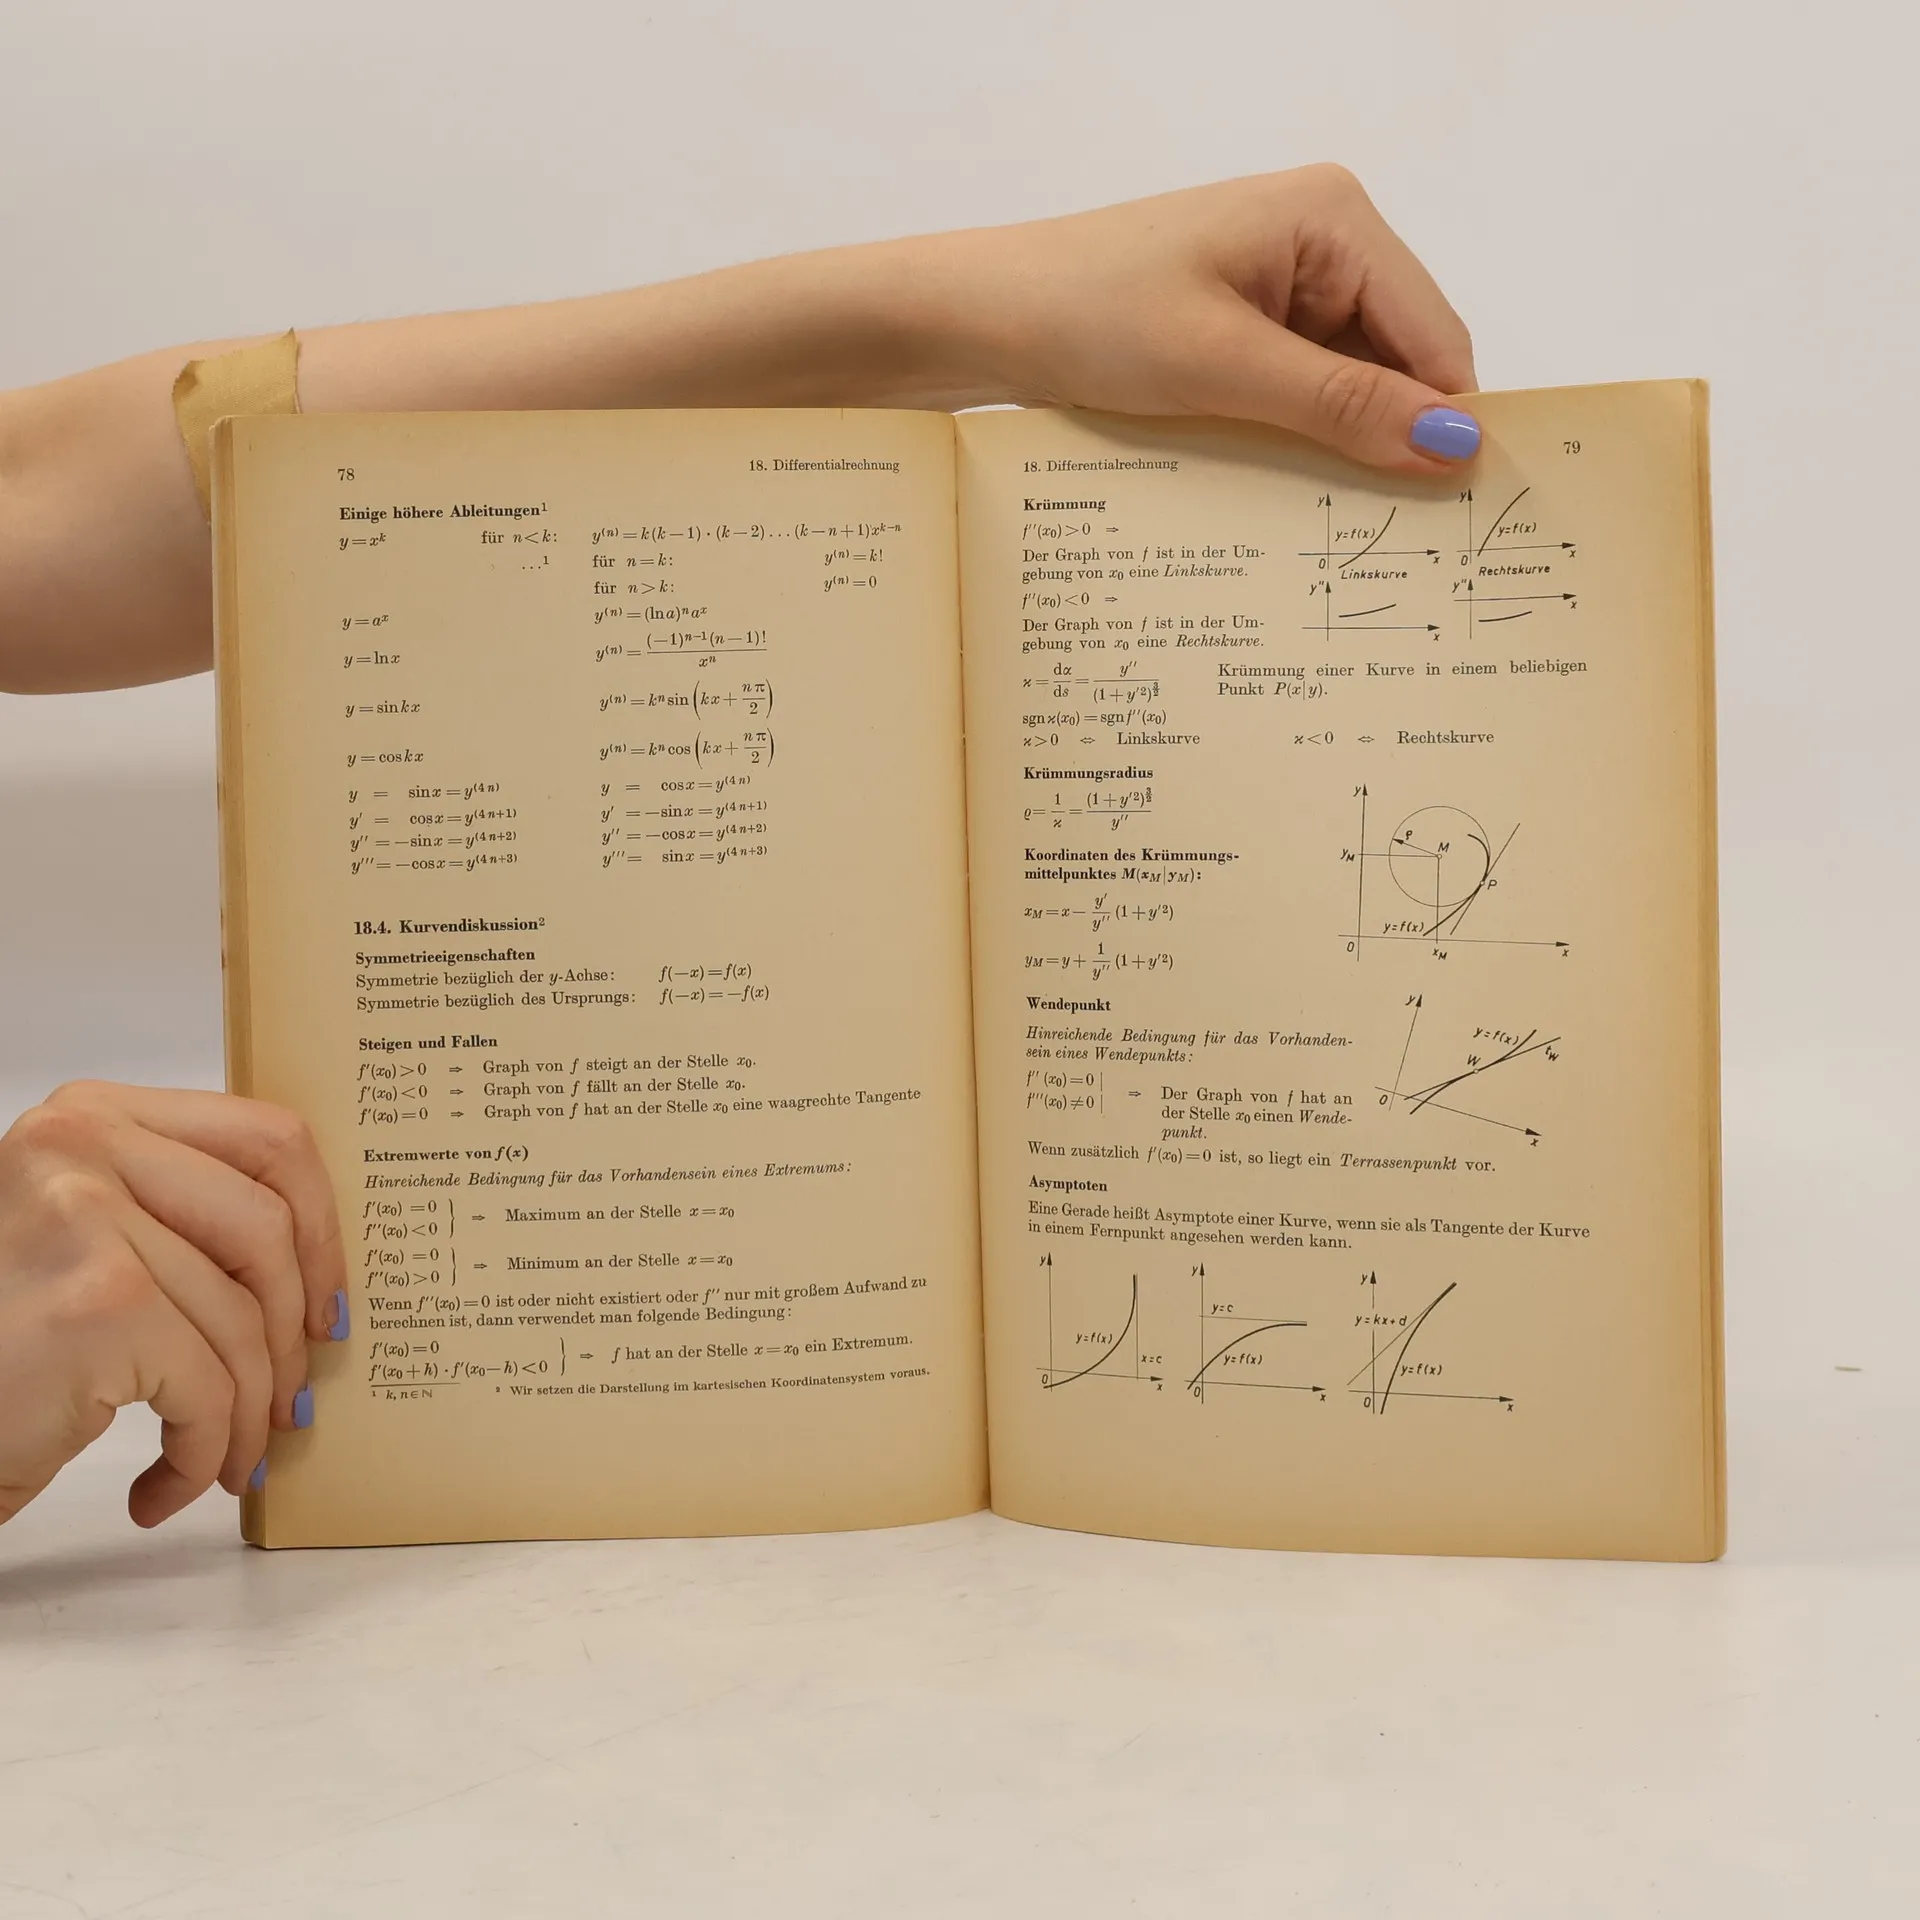 78
18. Differentialrechnung
Einige höhere Ableitungen¹
y=xᵏ für n<k: y⁽ⁿ⁾=k(k−1)·(k−2)...(k−n+1)xᵏ⁻ⁿ
...¹ für n=k: y⁽ⁿ⁾=k!
für n>k: y⁽ⁿ⁾=0
y=aˣ y⁽ⁿ⁾=(ln a)ⁿaˣ
y=ln x y⁽ⁿ⁾=(−1)ⁿ⁻¹(n−1)!/xⁿ
y=sin kx y⁽ⁿ⁾=kⁿ sin(kx+nπ/2)
y=cos kx y⁽ⁿ⁾=kⁿ cos(kx+nπ/2)
y = sin x=y⁽⁴ⁿ⁾ y = cos x=y⁽⁴ⁿ⁾
y' = cos x=y⁽⁴ⁿ⁺¹⁾ y' =−sin x=y⁽⁴ⁿ⁺¹⁾
y'' =−sin x=y⁽⁴ⁿ⁺²⁾ y'' =−cos x=y⁽⁴ⁿ⁺²⁾
y'''=−cos x=y⁽⁴ⁿ⁺³⁾ y'''= sin x=y⁽⁴ⁿ⁺³⁾
18.4. Kurvendiskussion²
Symmetrieeigenschaften
Symmetrie bezüglich der y-Achse: f(−x)=f(x)
Symmetrie bezüglich des Ursprungs: f(−x)=−f(x)
Steigen und Fallen
f'(x₀)>0 ⇒ Graph von f steigt an der Stelle x₀.
f'(x₀)<0 ⇒ Graph von f fällt an der Stelle x₀.
f'(x₀)=0 ⇒ Graph von f hat an der Stelle x₀ eine waagrechte Tangente
Extremwerte von f(x)
Hinreichende Bedingung für das Vorhandensein eines Extremums:
f'(x₀) =0
f''(x₀)<0 } ⇒ Maximum an der Stelle x=x₀
f'(x₀) =0
f''(x₀)>0 } ⇒ Minimum an der Stelle x=x₀
Wenn f''(x₀)=0 ist oder nicht existiert oder f'' nur mit großem Aufwand zu
berechnen ist, dann verwendet man folgende Bedingung:
f'(x₀)=0
f'(x₀+h)·f'(x₀−h)<0 } ⇒ f hat an der Stelle x=x₀ ein Extremum.
¹ k, n∈ℕ ² Wir setzen die Darstellung im kartesischen Koordinatensystem voraus.
18. Differentialrechnung
79
Krümmung
f''(x₀)>0 ⇒
Der Graph von f ist in der Um-
gebung von x₀ eine Linkskurve.
f''(x₀)<0 ⇒
Der Graph von f ist in der Um-
gebung von x₀ eine Rechtskurve.
y y=f(x) 0 x Linkskurve
y y=f(x) 0 x Rechtskurve
y'' x
y'' x
ϰ=dα/ds=y''/(1+y'²)^(3/2) Krümmung einer Kurve in einem beliebigen
Punkt P(x|y).
sgn ϰ(x₀)=sgn f''(x₀)
ϰ>0 ⇔ Linkskurve ϰ<0 ⇔ Rechtskurve
Krümmungsradius
ϱ=1/ϰ=(1+y'²)^(3/2)/y''
Koordinaten des Krümmungs-
mittelpunktes M(x_M|y_M):
x_M=x−y'/y''(1+y'²)
y_M=y+1/y''(1+y'²)
y ϱ M y_M P y=f(x) 0 x_M x
Wendepunkt
Hinreichende Bedingung für das Vorhanden-
sein eines Wendepunkts:
f''(x₀)=0 |
f'''(x₀)≠0 | ⇒ Der Graph von f hat an
der Stelle x₀ einen Wende-
punkt.
y y=f(x) W t_W 0 x
Wenn zusätzlich f'(x₀)=0 ist, so liegt ein Terrassenpunkt vor.
Asymptoten
Eine Gerade heißt Asymptote einer Kurve, wenn sie als Tangente der Kurve
in einem Fernpunkt angesehen werden kann.
y y=f(x) x=c 0 x
y y=c y=f(x) 0 x
y y=kx+d y=f(x) 0 x